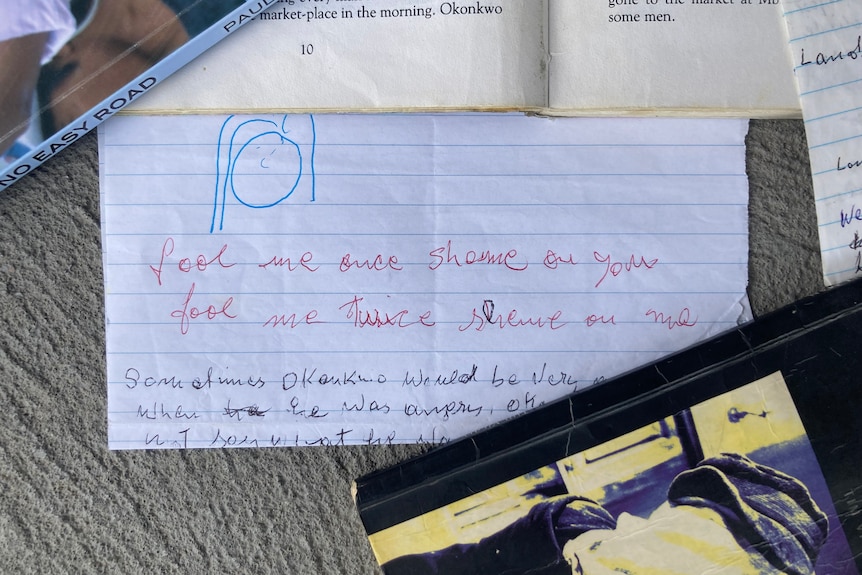 market-place in the morning. Okonkwo
10
gone to the market at
some men.
NO EASY ROAD
PAUL
fool me once shame on you
fool me twice shame on me
Sometimes Okonkwo would be very
when he was angry,
We